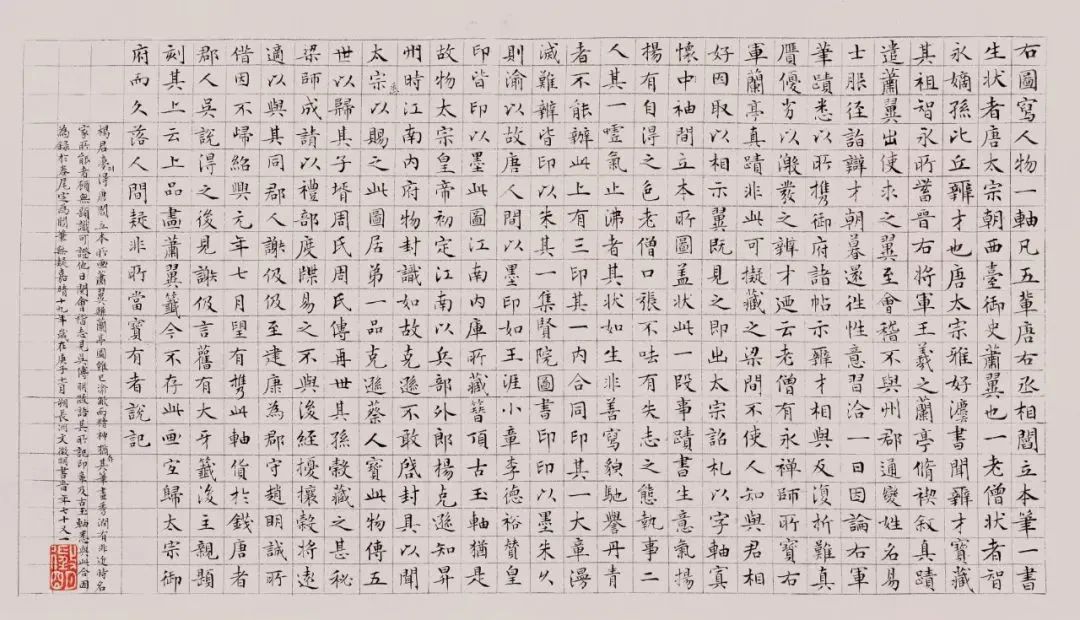 右圖寫人物一軸凡五輩唐右丞相閻立本筆一書
生狀者唐太宗朝西臺御史蕭翼也一老僧狀者智
永嫡孫比丘辨才也唐太宗雅好灋書聞辨才寶藏
其祖智永所蓄晉右將軍王羲之蘭亭脩禊叙真蹟
遣蕭翼出使求之翼至會稽不與州郡通變姓名易
士服徑詣辯才朝暮還徃性意習洽一日因論右軍
筆蹟悉以所携御府諸帖示辨才相與反復折難真
贋優劣以激發之辨才迺云老僧有永禅師所寶右
軍蘭亭真蹟非此可擬藏之梁間不使人知與君相
好因取以相示翼既見之即出太宗詔札以字軸寘
懷中袖間立本所圖盖状此一段事蹟書生意氣揚
揚有自得之色老僧口張不呿有失志之態執事二
人其一噓氣止沸者其状如生非善寫貌馳譽丹青
者不能辦此上有三印其一内合同印其一大章漫
滅難辨皆印以朱其一集賢院圖書印印以墨朱久
則渝以故唐人間以墨印如王涯小章李德裕贊皇
印皆印以墨此圖江南内庫所藏簪頂古玉軸猶是
故物太宗皇帝初定江南以兵部外郎楊克遜知昇
州時江南内府物封識如故克遜不敢啓封具以聞
太宗悉以賜之此圖居第一品克遜蔡人寶此物傳五
世以歸其子壻周氏周氏傳再世其孫穀藏之甚秘
梁師成請以禮部度牒易之不與後經擾攘穀將遠
適以與其同郡人謝伋伋至建康為郡守趙明誠所
借因不歸紹興元年七月望有携此軸貨於錢唐者
郡人吳說得之後見謝伋言舊有大牙籤後主親題
刻其上云上品畫蕭翼籤今不存此画宐歸太宗御
府而久落人間疑非所當寶有者說記
楊君夢羽得唐閻立本所画蕭翼賺蘭亭圖雖已渝敝而精神猶在其筆畫秀潤有非近時名
家所能者顧無題識可證他日閱會稽志見吳傅朋跋語其所記印章及古玉軸悉與此合因
為錄於卷尾定為閻筆無疑嘉靖十九年歲在庚子七月朔長洲文徵明書旹年七十又一